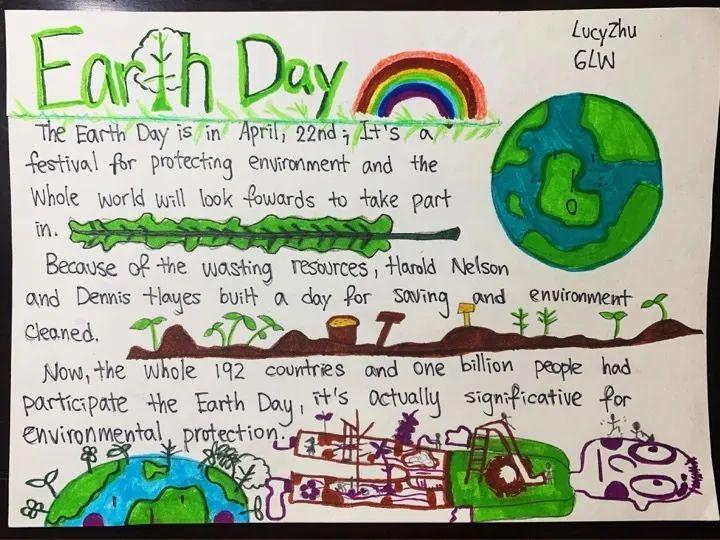 Earth Day
LucyZhu
6LW
The Earth Day is in April, 22nd; It's a
festival for protecting environment and the
Whole world will look fowards to take part
in.
Because of the wasting resources, Harold Nelson
and Dennis Hayes built a day for saving and environment
cleaned.
Now, the whole 192 countries and one billion people had
participate the Earth Day, it's actually significative for
environmental protection.